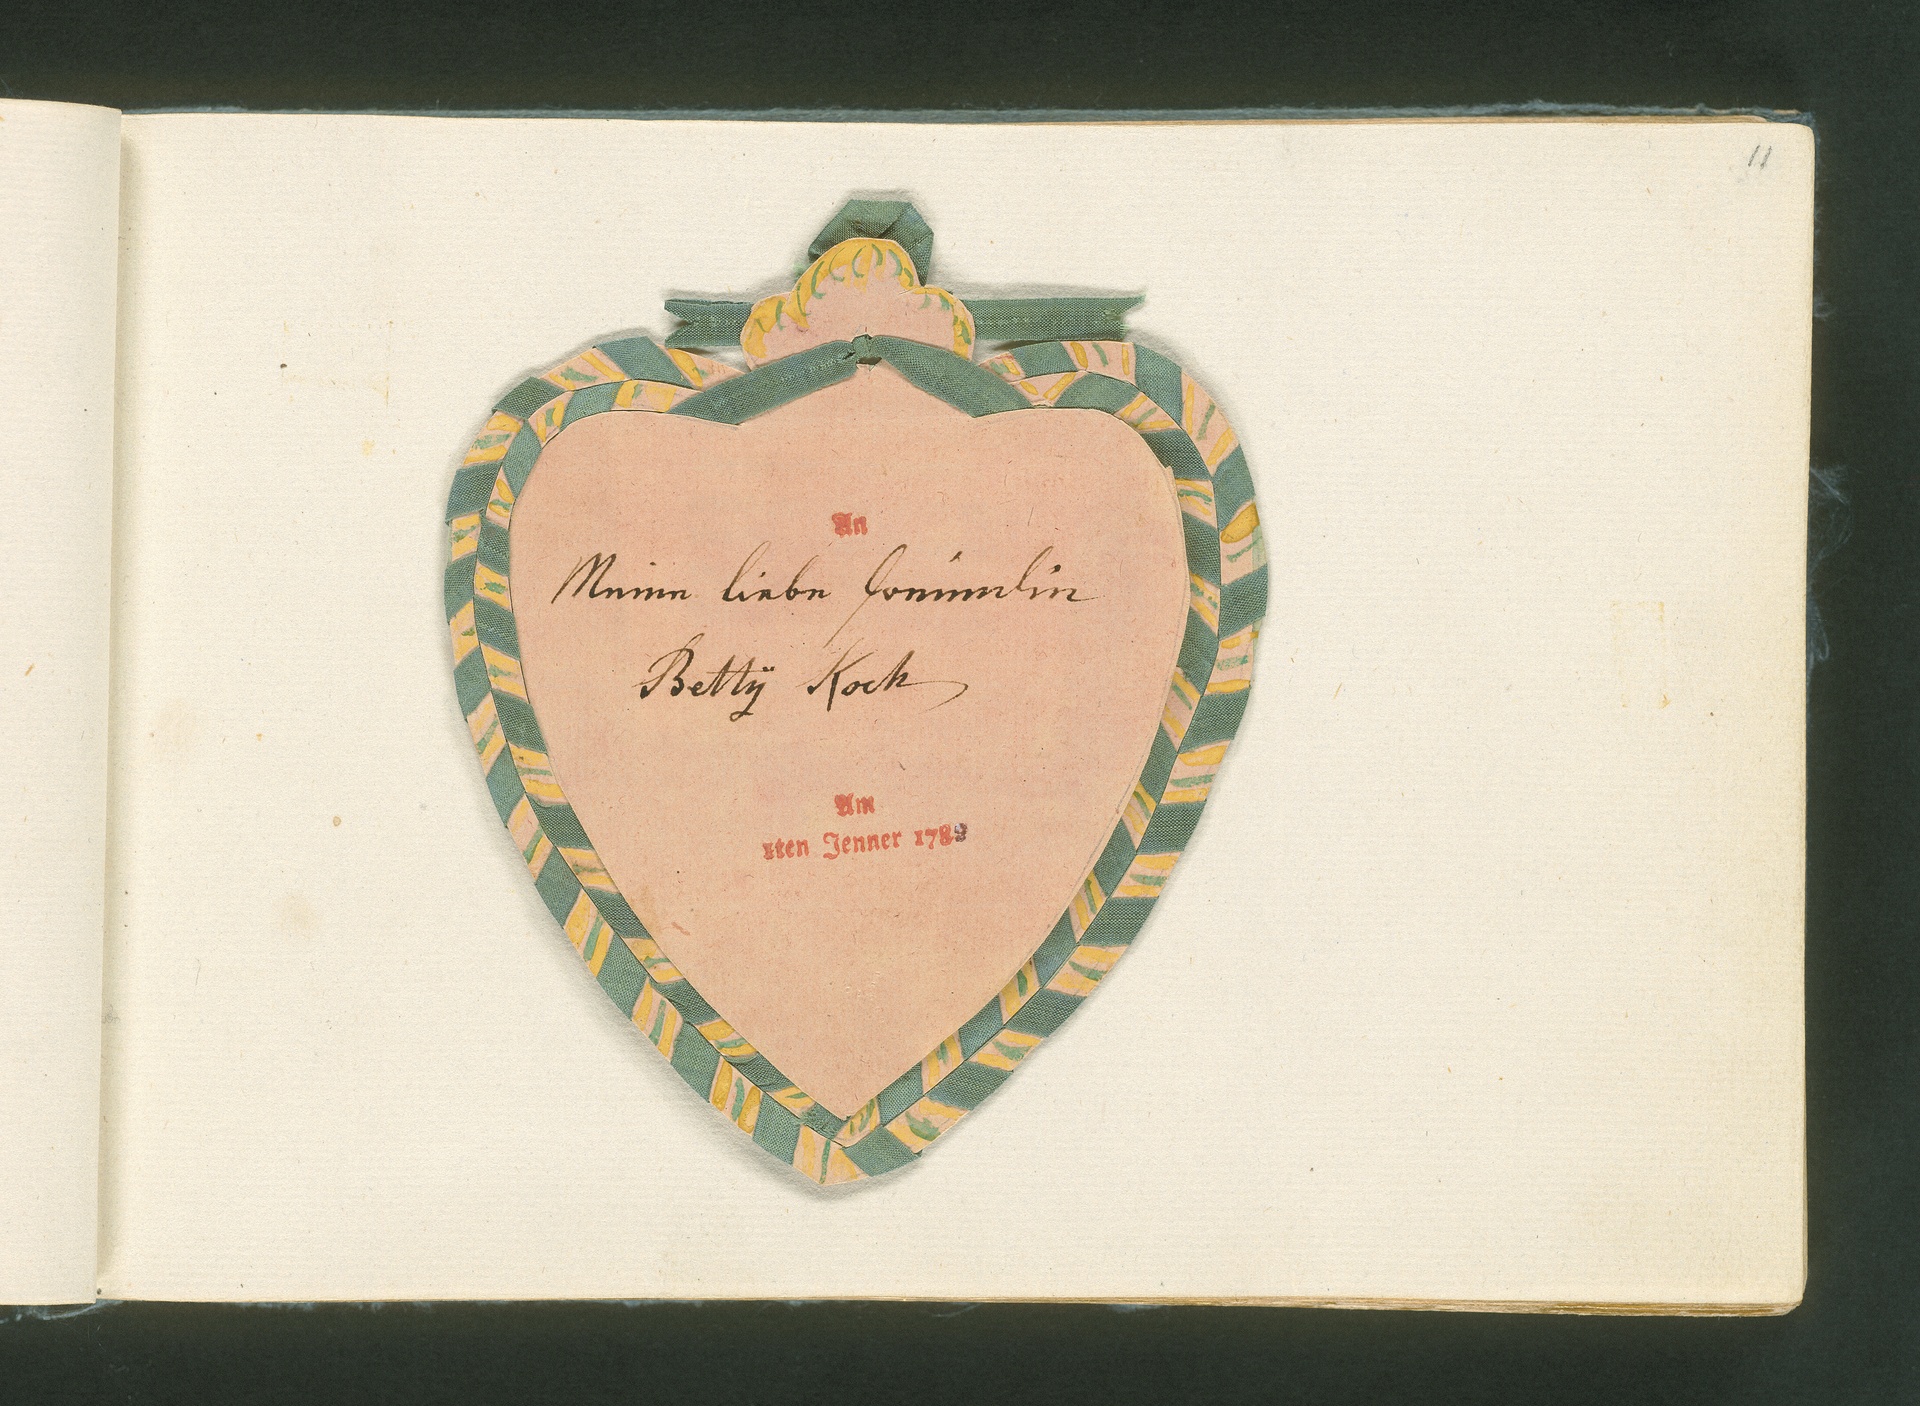 11
An
Meine liebe Freündin
Bettÿ Koch
Am
1ten Jenner 1789